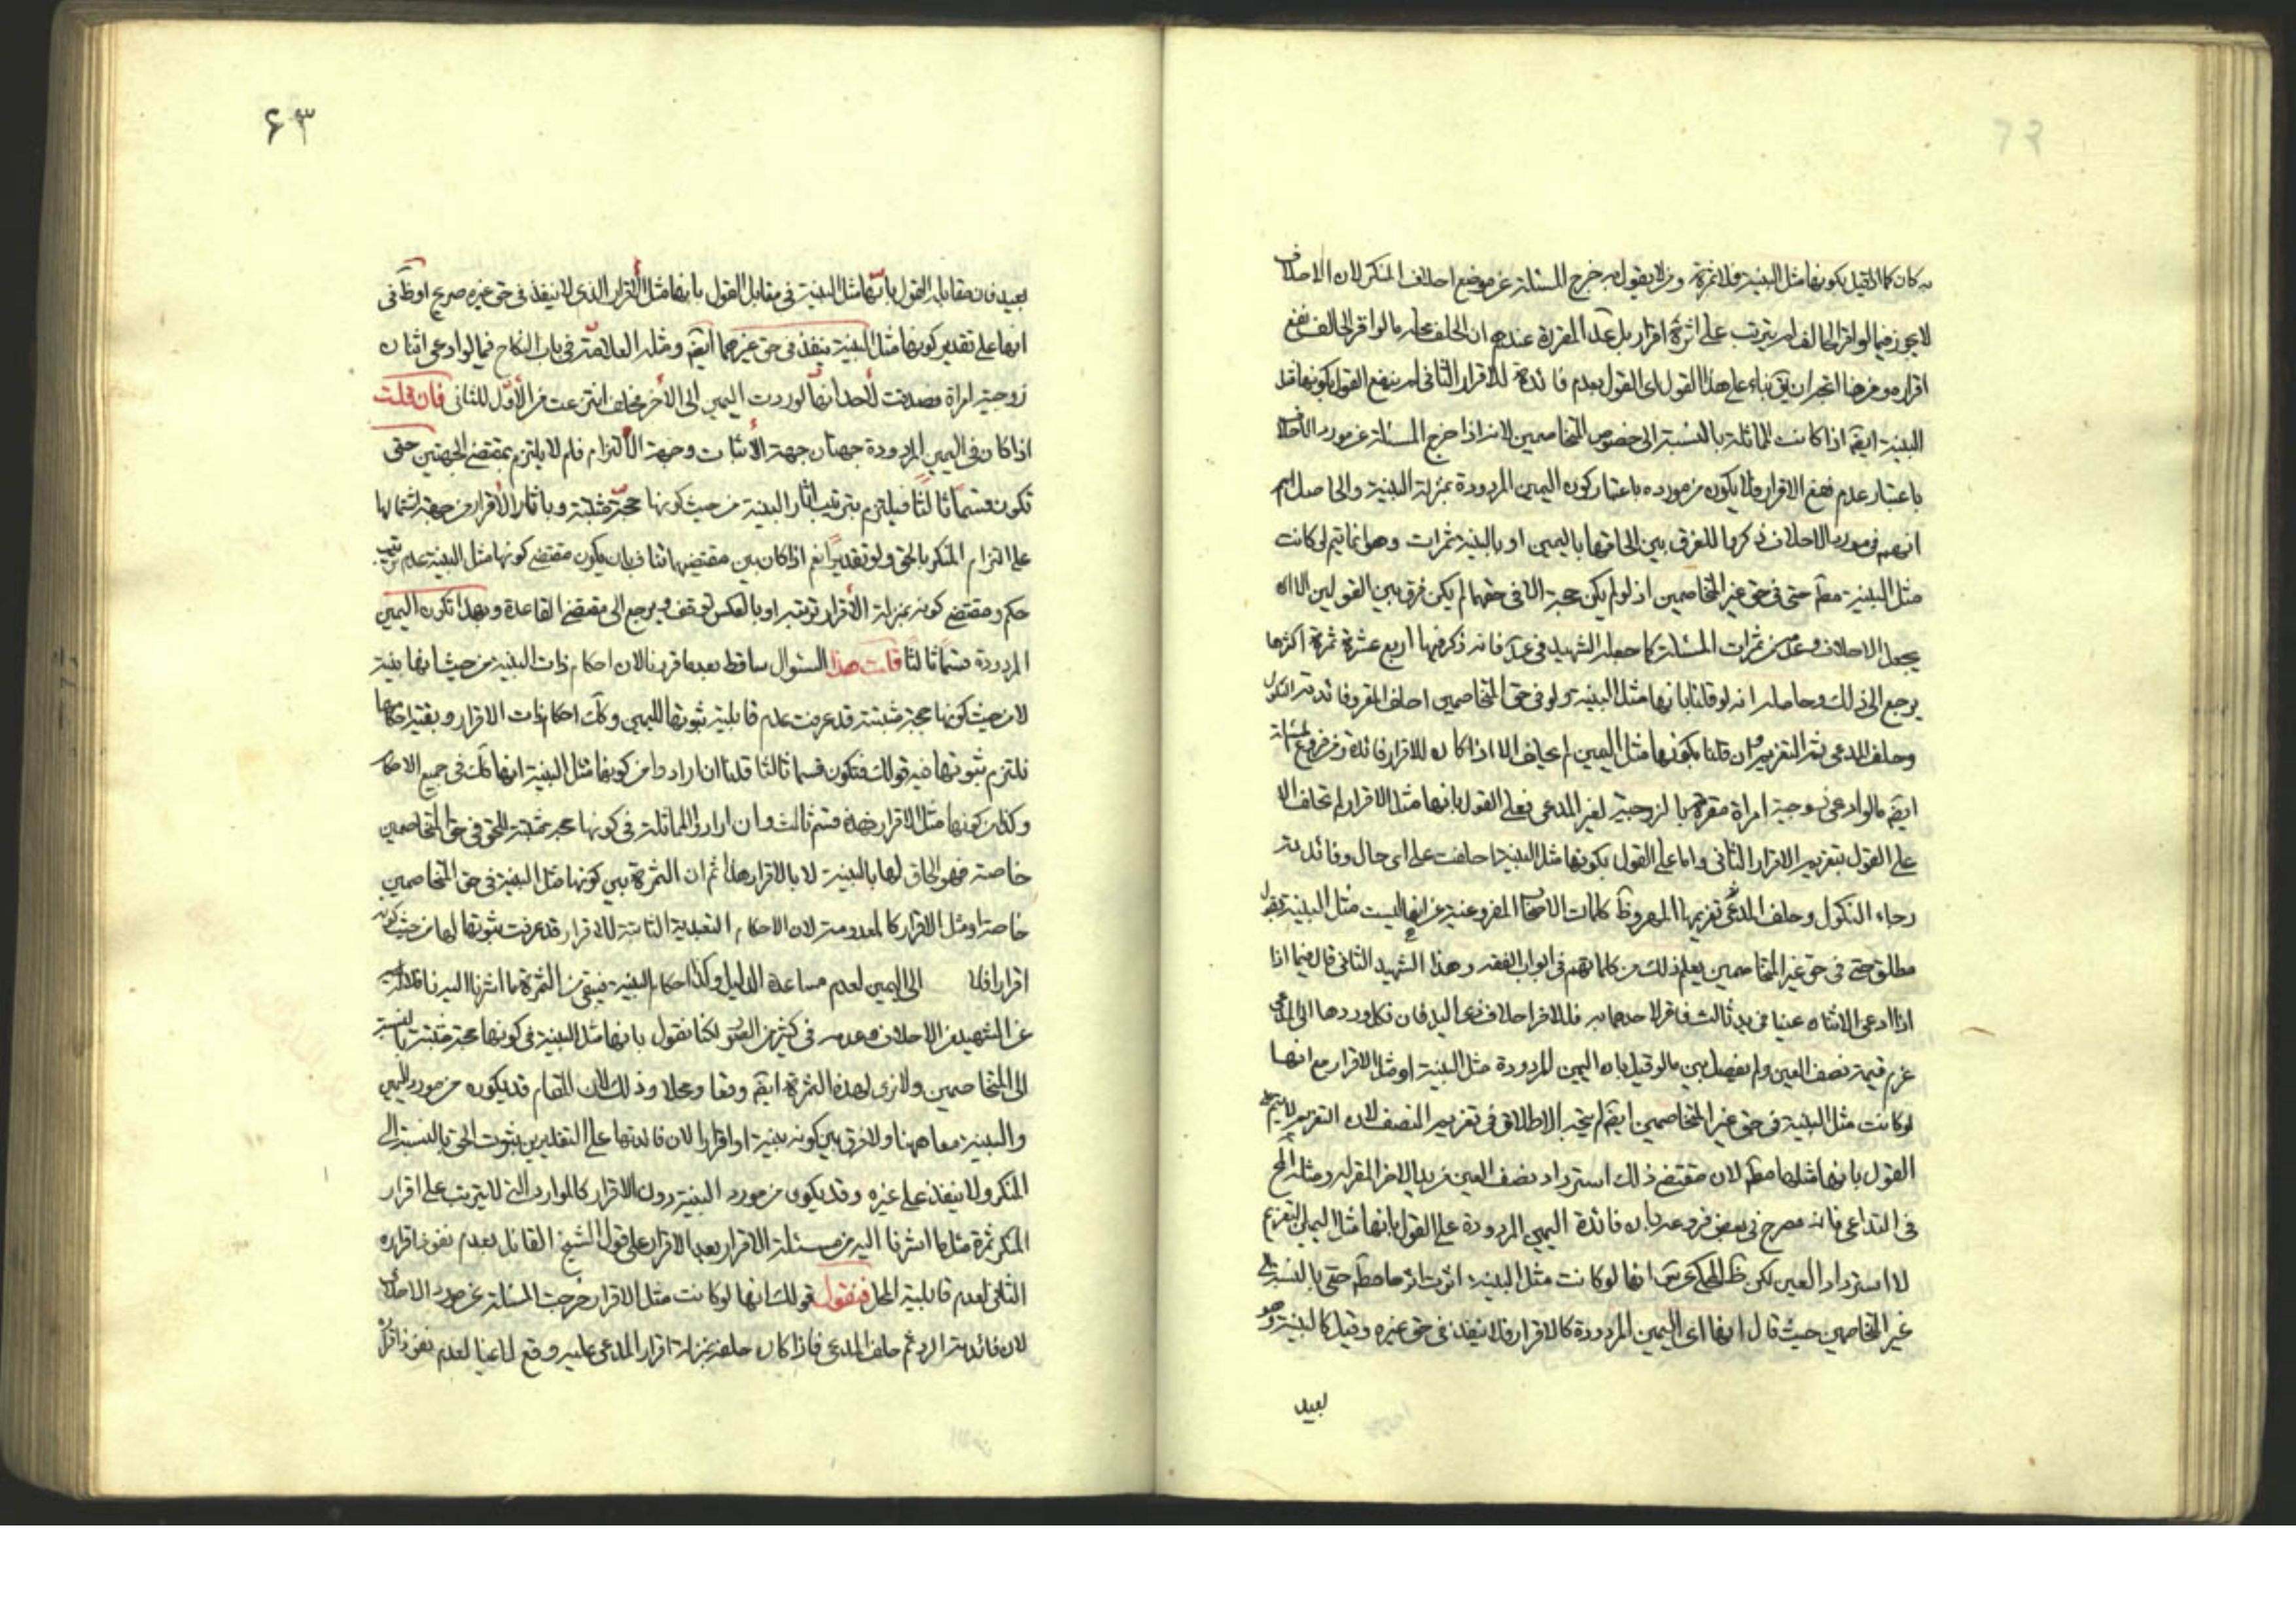 به كان كما لو قيل بكونها مثل البينة فلا ثمرة ومن لا يقول به خرج المسئلة عن موضع احلاف المنكر لان الاحلاف
لا يجوز فيما لو اقر الحالف لم يترتب على اثره اقرار بل المقررة عندهم ان الحلف محله ما لو اقر الحالف نفع
اقراره ومن هنا اتجه ان يق بناء على هذا القول اى القول بعدم فائدة للاقرار الثانى لم ينفع القول بكونها مثل
البينة ايضا اذا كانت المماثلة بالنسبة الى خصوص المتخاصمين لانه اذا خرج المسئلة عن مورد الاحلاف
باعتبار عدم نفع الاقرار فلا يكون من مورده باعتبار كون اليمين المردودة بمنزلة البينة والحاصل انهم
انهم فى مورد الاحلاف ذكروا للفرق بين الحاقها باليمين او بالبينة ثمرات وهو انما تتم لو كانت
مثل البينة مطم حتى فى حق غير المتخاصمين اذ لو لم يكن حجة الا فى حقهما لم يكن فرق بين القولين الا ان
يجعل الاحلاف وعدمه من ثمرات المسئلة كما جعله الشهيد فى عد فانه ذكر فيها اربع عشرة ثمرة اكثرها
يرجع الى ذلك وحاصله انه لو قلنا بانها مثل البينة ولو فى حق المتخاصمين احلف المقر وفائدته النكول
وحلف المدعى ثم التغريم وان قلنا بكونها مثل اليمين لم يحلف الا اذا كان للاقرار فائدة ومن فروع المسئلة
ايضا ما لو ادعى زوجية امراة مقرة بالزوجية لغير المدعى فعلى القول بانها مثل الاقرار لم تحلف الا
على القول بتغريم الاقرار الثانى واما على القول بكونها مثل البينة احلفت على اى حال وفائدته
رجاء النكول وحلف المدعى تغريمها المهر وظ كلمات الاصحاب المفروغية عن انها ليست مثل البينة بقول
مطلق حتى فى حق غير المتخاصمين يعلم ذلك من كلماتهم فى ابواب الفقه وهذا الشهيد الثانى قال فيما اذا
اذا ادعى الاثنان عينا فى يد ثالث فاقر لاحدهما به فللاخر احلاف ذى اليد فان نكل ورد ها الى المدعى
غرم قيمة نصف العين ولم يفصل بين ما لو قيل بان اليمين المردودة مثل البينة او مثل الاقرار مع انها
لو كانت مثل البينة فى حق غير المتخاصمين ايضا لم يتجه الاطلاق فى تغريم النصف لان التغريم لا يتم على
القول بانها مثلها مطم لان مقتضى ذلك استرداد نصف العين من يد الاخر المقر له ومثله المح
فى التداعى فانه مصرح فى بعض فروعه بان فائدة اليمين المردودة على القول بانها مثل اليمين التغريم
لا استرداد العين لكن ظ المحكى عن انها لو كانت مثل البينة اثرت اثرها مطم حتى بالنسبة الى
غير المتخاصمين حيث قال انها اى اليمين المردودة كالاقرار فلا ينفذ فى حق غيره وقيل كالبينة وهو
بعيد
٦٣
بعيد فان مقابلة القول بانها مثل البينة فى مقابل القول بانها مثل الأقرار الذى لا ينفذ فى حق غيره صريح او ظ فى
انها على تقدير كونها مثل البينة ينفذ فى حق غيرهما ايضا ومثله العلامة فى باب النكاح فيما لو ادعى اثنان
زوجية امراة فصدقت لأحدهما انها لو ردت اليمين الى الأخر فحلف انتزعت من الأول للثانى فان قلت
اذا كان فى اليمين المردودة جهتان جهة الأثبات وجهة الألتزام فلم لا يلتزم بمقتضى الجهتين حتى
تكون قسما ثالثا فيلتزم بترتيب اثار البينة من حيث كونها حجة مثبتة وباثار الأقرار من جهة اشتمالها
على التزام المنكر بالحق ولو تقديرا نعم اذا كان بين مقتضيهما تناف بان يكون مقتضى كونها مثل البينة عدم ترتيب
حكم ومقتضى كونه بمنزلة الأقرار ترتبه او بالعكس توقف ويرجع الى مقتضى القاعدة وبهذا تكون اليمين
المردودة قسما ثالثا قلت هذا السئوال ساقط بعد ما قررنا لان احكام ذات البينة من حيث انها بينة
لا من حيث كونها حجة مثبتة قد عرفت عدم قابلية ثبوتها لليمين وكك احكام ذات الاقرار وبقية احكامها
نلتزم بثبوتها فيه قولك فتكون قسما ثالثا قلنا ان ارادوا من كونها مثل البينة انها كك فى جميع الاحكام
وكذلك كونها مثل الاقرار فهذه قسم ثالث وان ارادوا المماثلة فى كونها حجة مثبتة للحق فى حق المتخاصمين
خاصة فهو الحاق لها بالبينة لا بالاقرار هذا ثم ان الثمرة بين كونها مثل البينة فى حق المتخاصمين
خاصة او مثل الاقرار كالمعدومة لان الاحكام التعبدية الثابتة للاقرار قد عرفت ثبوتها لها من حيث كونه
اقرارا فلا الى اليمين لعدم مساعدة الدليل وكذا احكام البينة فيبقى من الثمرة ما اشرنا اليه نقلا
عن الشهيد من الاحلاف وعدمه فى كثير من الصور لكنا نقول بانها مثل البينة فى كونها حجة مثبتة بالنسبة
الى المتخاصمين ولا نرى لهذه الثمرة ايضا وقعا ومحلا وذلك لان المقام قد يكون من مورد اليمين
والبينة معا وهنا ولا فرق بين كونه بينة او اقرارا لان فائدتها على التقديرين ثبوت الحق بالنسبة الى
المنكر ولا ينفذ على غيره وقد يكون من مورد البينة دون الاقرار كالموارد التى لا يترتب على اقرار
المنكر ثمرة مثل ما اشرنا اليه من مسئلة الاقرار بعد الاقرار على قول الشيخ القائل بعدم نفوذ اقراره
الثانى لعدم قابلية المحل فنقول قولك انها لو كانت مثل الاقرار خرجت المسئلة عن مورد الاحلاف
لان فائدته الرد ثم حلف المدعى فاذا كان حلفه بمنزلة اقرار المدعى عليه وقع لاغيا لعدم نفوذ اقراره